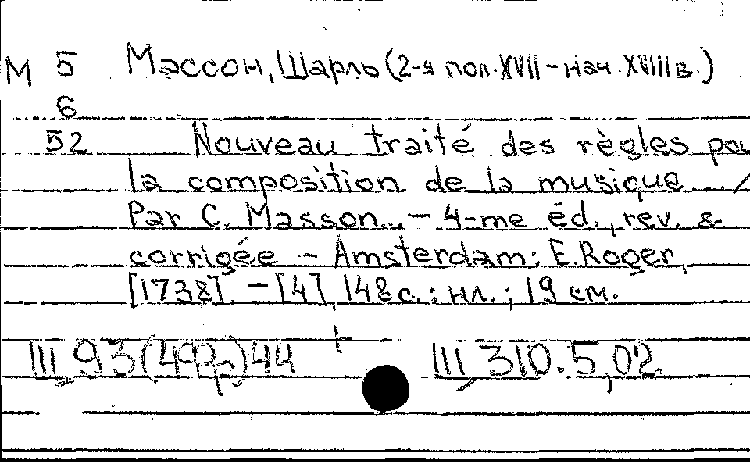 М 5 Массон, Шарль (2-я пол. XVII - нач. XVIII в.)
6
52 Nouveau traité des règles pou
la composition de la musique... /
Par C. Masson.. - 4-me éd., rev. &
corrigée - Amsterdam: E. Roger,
[1738]. - [4], 148 с.: нл.; 19 см.
Ш 93(4Фр)44 + Ш 310.5,02